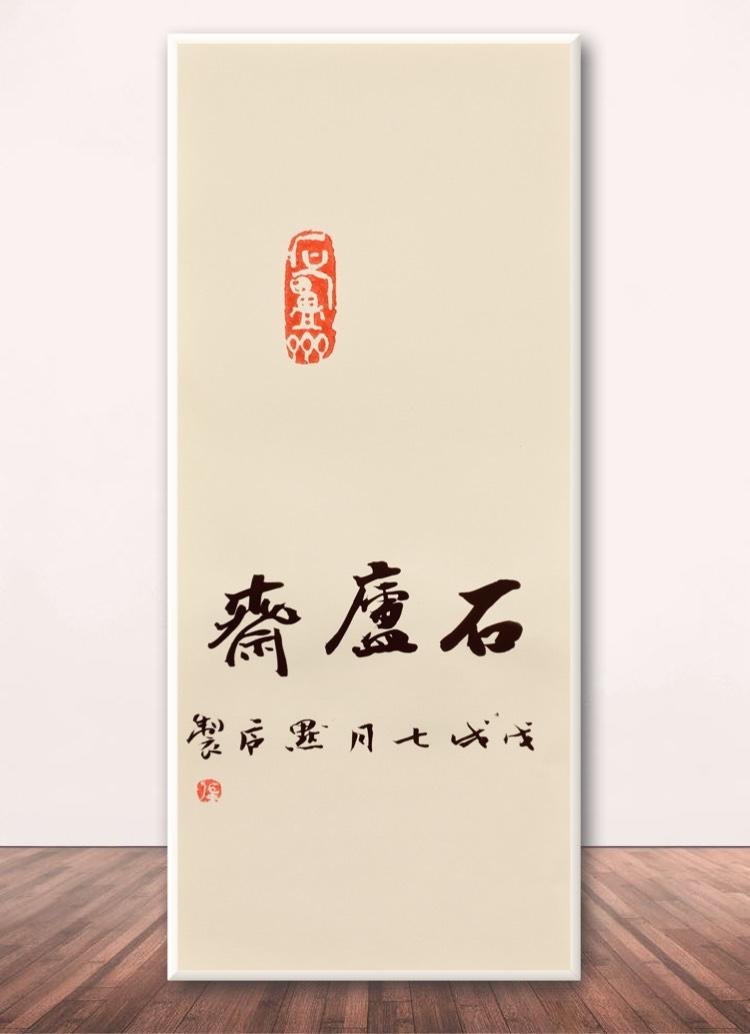 石廬齋
戊戌七月默製